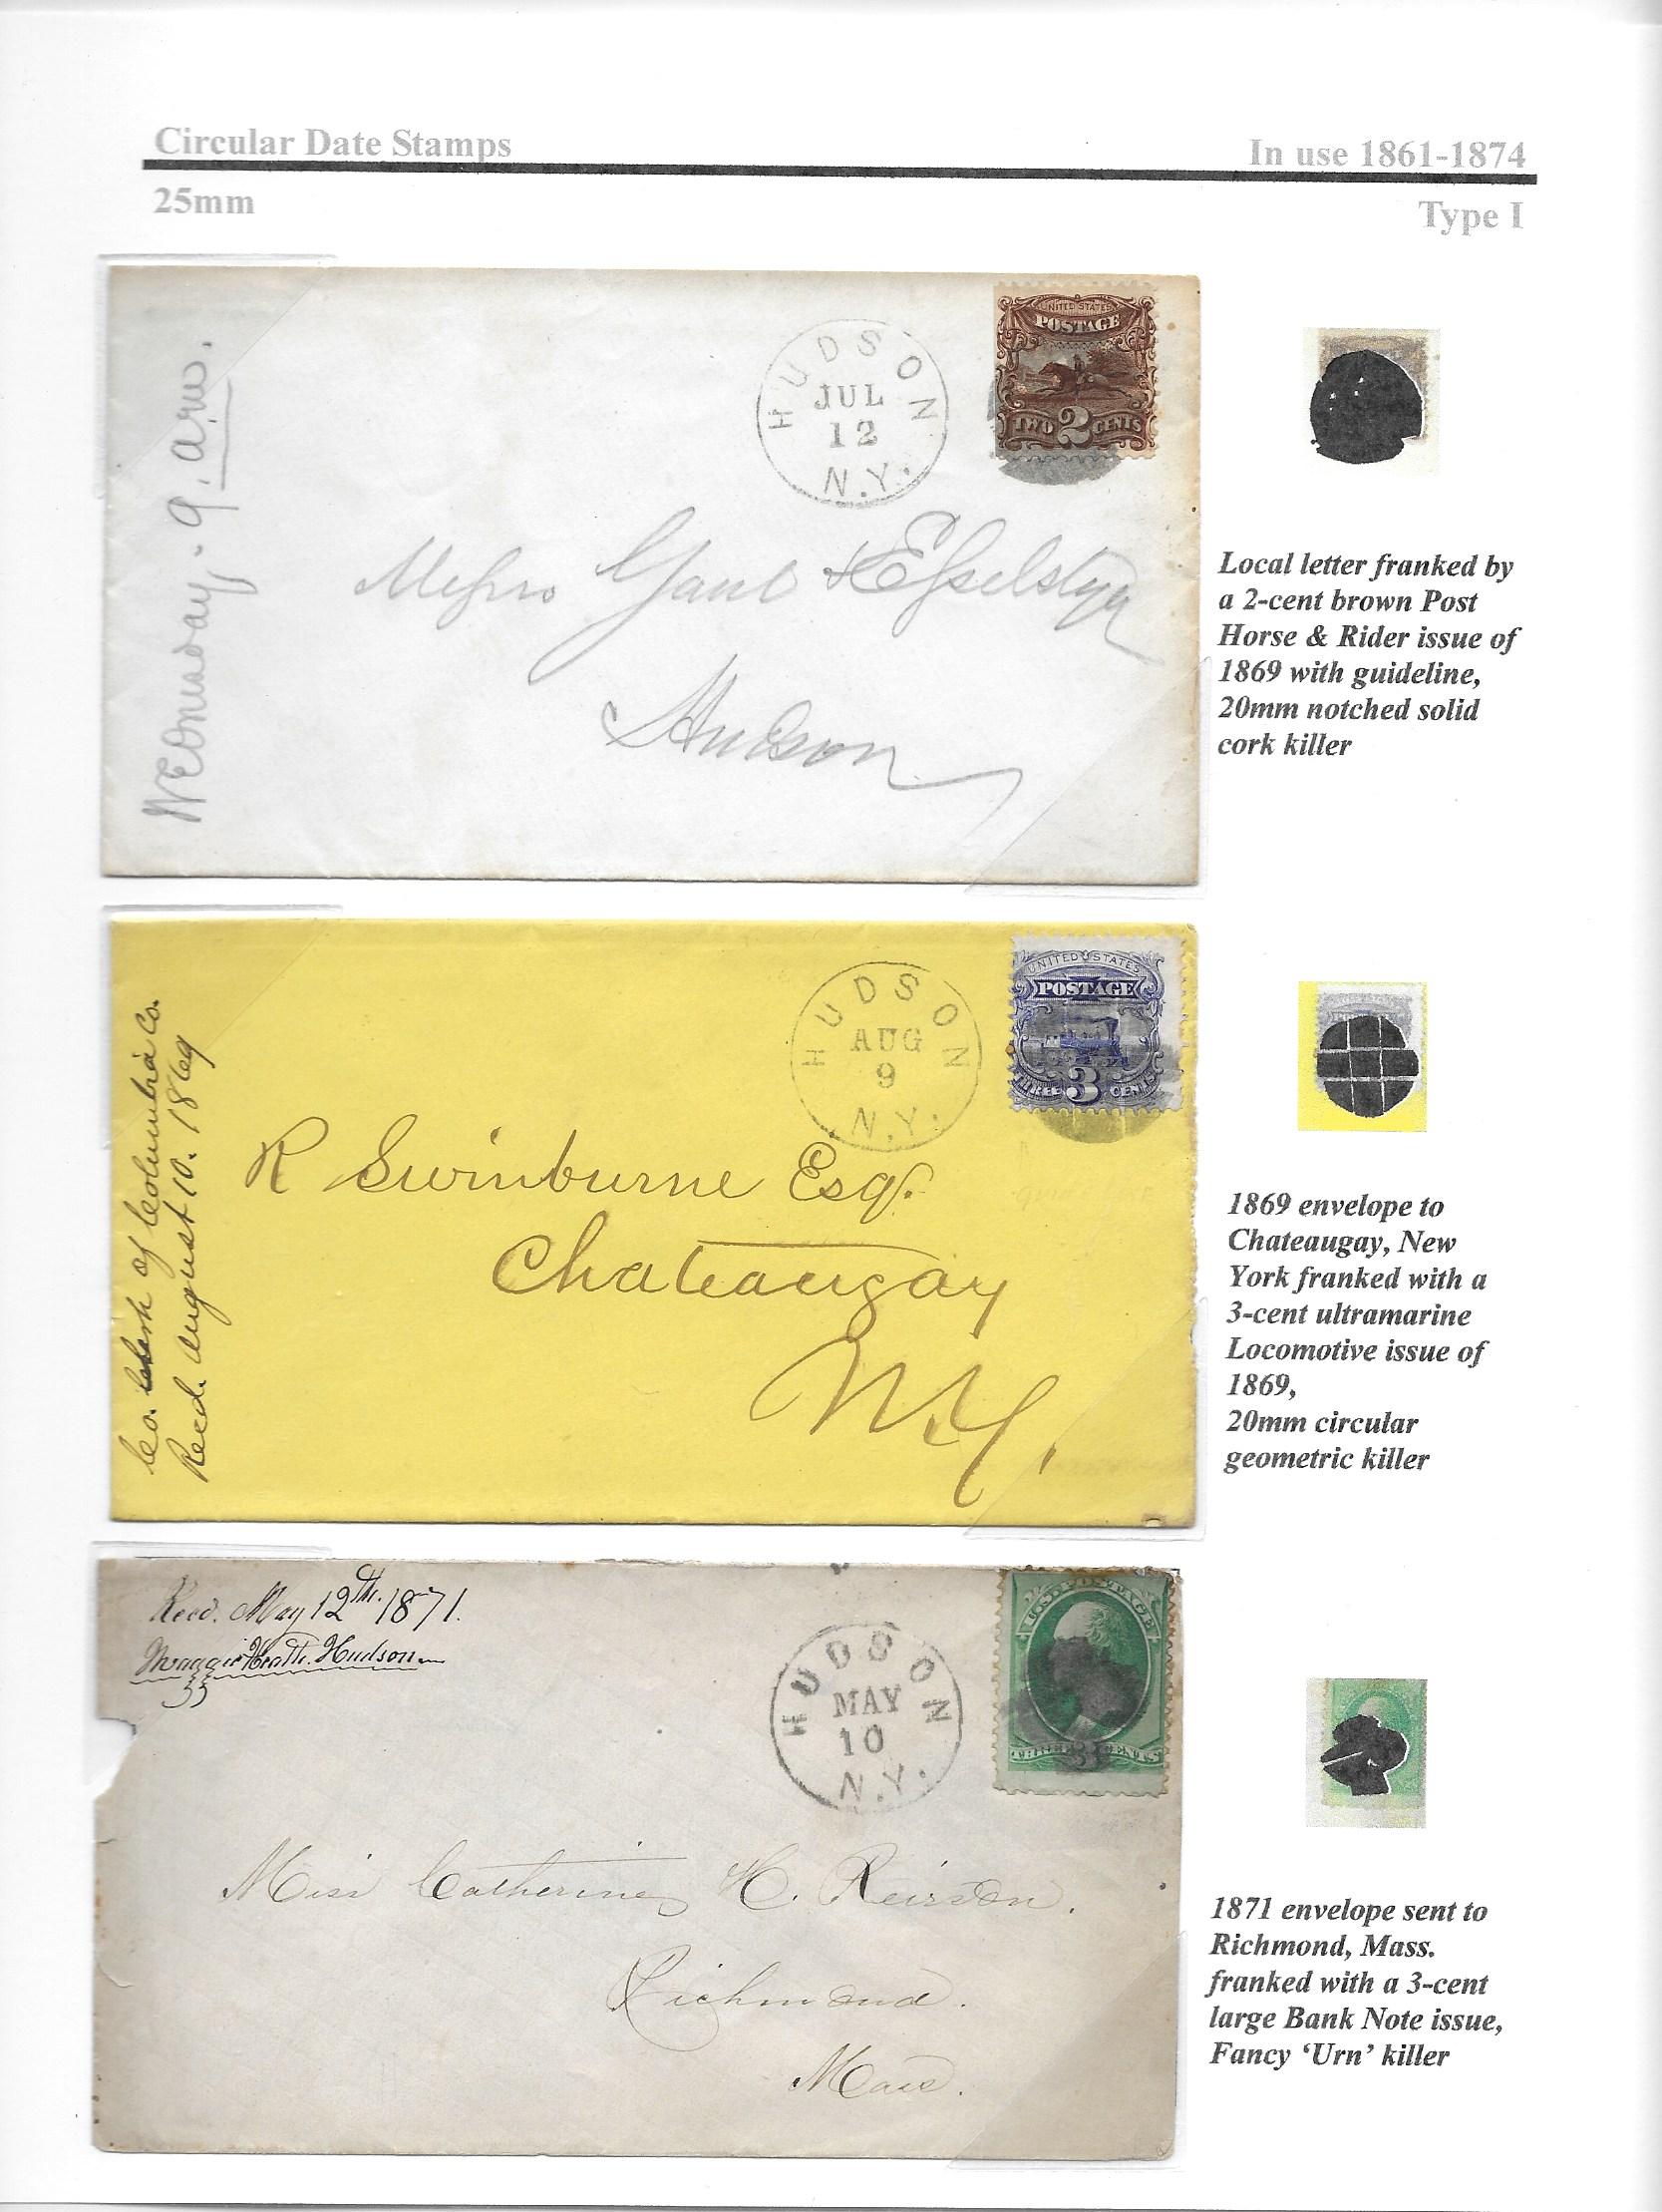 Circular Date Stamps
In use 1861-1874
25mm
Type I
HUDSON
JUL
12
N.Y.
UNITED STATES
POSTAGE
TWO 2 CENTS
Wednesday. 9. a.m.
Messrs Gaul & Esselstyn
Hudson
Local letter franked by
a 2-cent brown Post
Horse & Rider issue of
1869 with guideline,
20mm notched solid
cork killer
HUDSON
AUG
9
N.Y.
UNITED STATES
POSTAGE
THREE 3 CENTS
Co. Clerk of Columbia Co.
Recd. August 10. 1869
R Swinburne Esq.
Chateaugay
N.Y.
1869 envelope to
Chateaugay, New
York franked with a
3-cent ultramarine
Locomotive issue of
1869,
20mm circular
geometric killer
Recd. May 12th. 1871.
Maggie Heath. Hudson
HUDSON
MAY
10
N.Y.
U.S. POSTAGE
THREE 3 CENTS
Miss Catherine H.
Richmond.
Mass.
1871 envelope sent to
Richmond, Mass.
franked with a 3-cent
large Bank Note issue,
Fancy ‘Urn’ killer